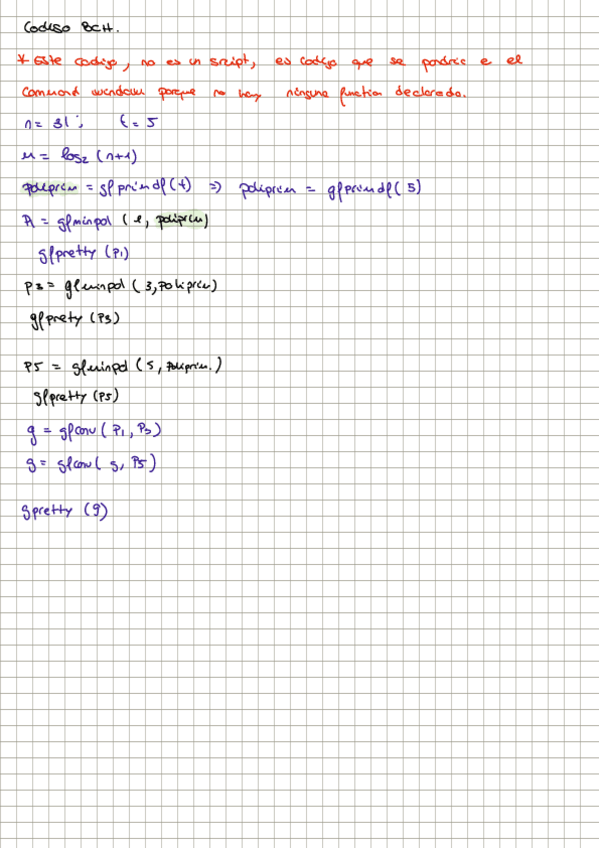 Codigo BCH.
* Este codigo, no es un script, es codigo que se pondria e el
Command window porque no hay ninguna function declarada.
n = 31 ; t = 5
m = log2 (n+1)
poliprim = gfprimdf(t) => poliprim = gfprimdf(5)
P1 = gfminpol (1, poliprim)
gfpretty (P1)
P3 = gfminpol (3, poliprim)
gfprety (P3)
P5 = gfminpol (5, poliprim.)
gfpretty (P5)
g = gfconv (P1, P3)
g = gfconv (g, P5)
gpretty (g)